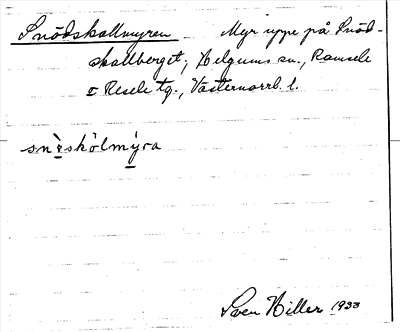 Snödskallmyren Myr uppe på Snöd-
skallberget; Helgums sn., Ramsele
o Resele tg., Västernorrl. l.
Sven Hiller 1933